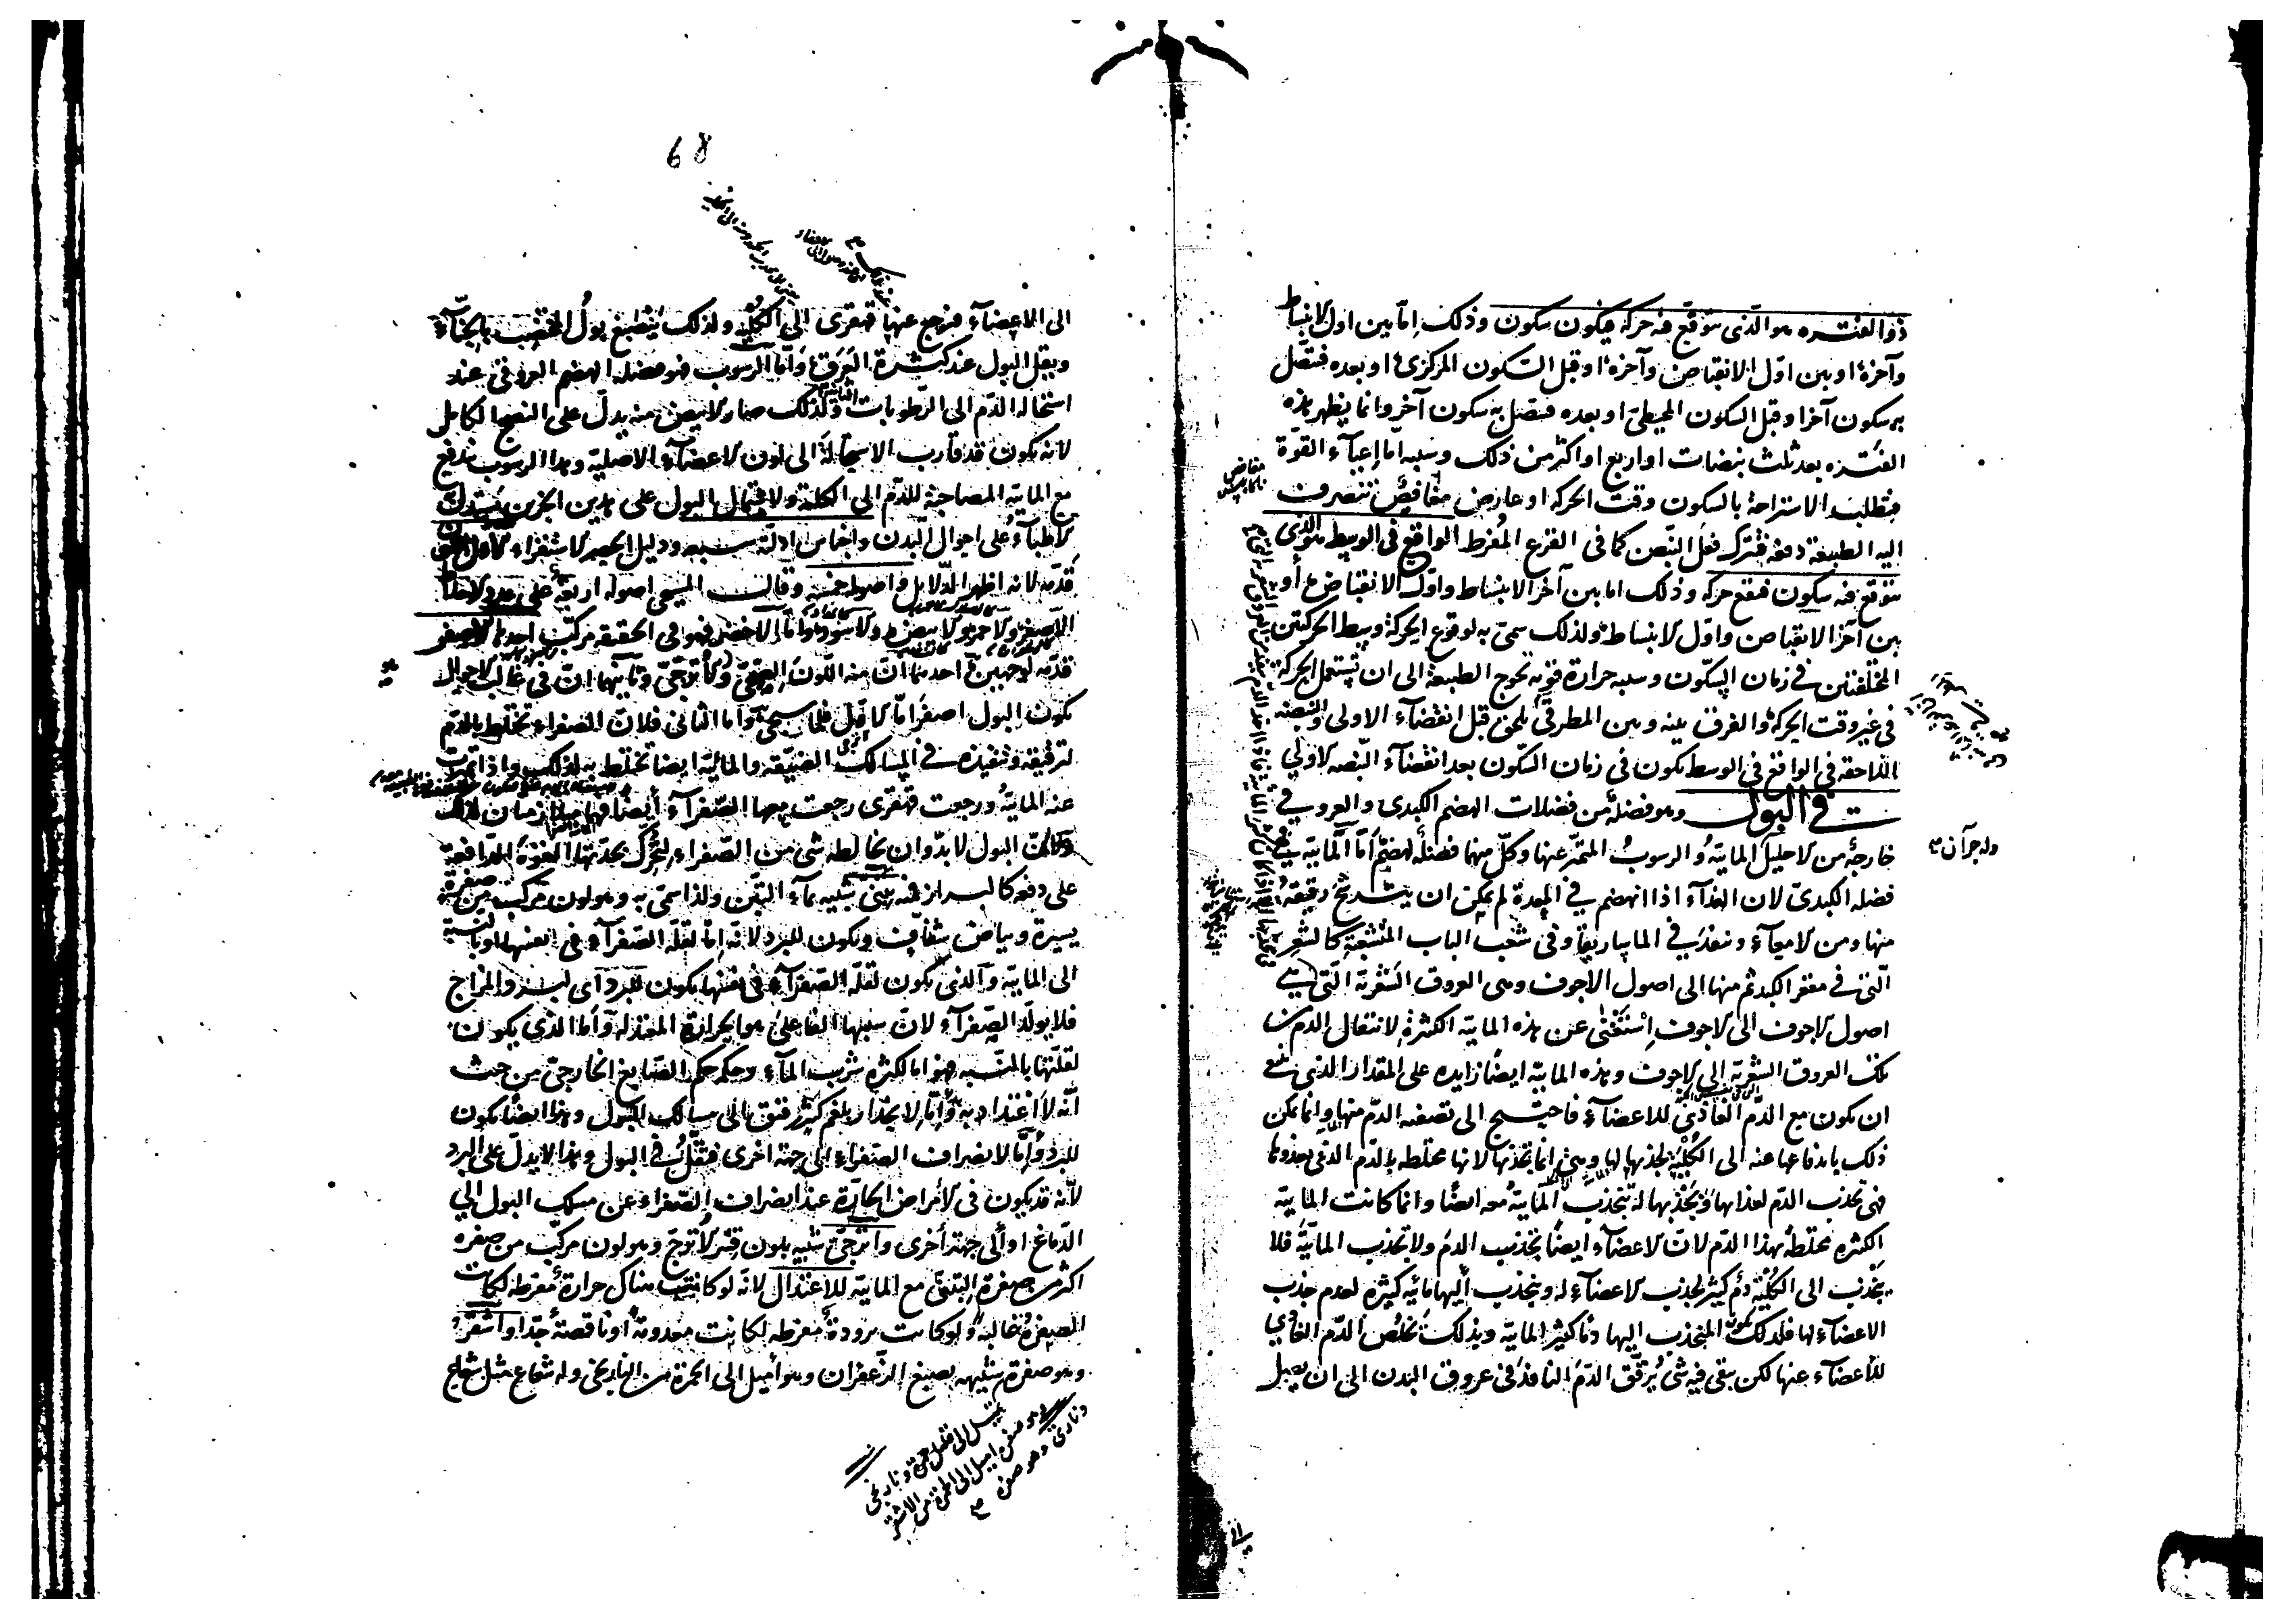 ذو الفترة هو الذى يتوقع فيه حركة فيكون سكون وذلك اما بين اول الانبساط
وآخره او بين اول الانقباض وآخره او قبل السكون المركزى او بعده فيتصل
به سكون آخر او قبل السكون المحيطى او بعده فيتصل به سكون آخر وانما يظهر هذه
الفترة بعد ثلث نبضات او اربع او اكثر من ذلك وسببه اما اعياء القوة
فتطلب الاستراحة بالسكون وقت الحركة او عارض مغافص تنصرف
اليه الطبيعة دفعة فتترك فعل النبض كما فى الفزع المفرط الواقع فى الوسط هو الذى
يتوقع فيه سكون فيقع حركة وذلك اما بين آخر الانبساط واول الانقباض او
بين آخر الانقباض واول الانبساط ولذلك سمى به لوقوع الحركة وسط الحركتين
المختلفتين فى زمان السكون وسببه حرارة قوية تحوج الطبيعة الى ان تستعمل الحركة
فى غير وقت الحركة والفرق بينه وبين المطرقى يلحق قبل انقضاء الاولى والنبضة
اللاحقة فى الواقع فى الوسط يكون فى زمان السكون بعد انقضاء النبضة الاولى
فى البول وهو فضلة من فضلات الهضم الكبدى والعروقى
خارجة من الاحليل المائية والرسوب المتميز عنها وكل منهما فضلة لهضم اما المائية فهى
فضلة الكبدى لان الغذاء اذا انهضم فى المعدة لم يمكن ان يترشح رقيقه
منها ومن الامعاء وينفذ فى الماساريقا وفى شعب الباب المنشعبة كالشعر
التى فى مقعر الكبد ثم منها الى اصول الاجوف وهى العروق الشعرية التى هى
اصول الاجوف الى الاجوف استغنى عن هذه المائية الكثيرة لانتقال الدم من
تلك العروق الشعرية الى الاجوف وهذه المائية ايضا زايدة على المقدار الذى ينبغى
ان يكون مع الدم الغاذى للاعضاء فاحتيج الى تصفية الدم منها وانما يمكن
ذلك باندفاعها عنه الى الكلية بجذبها لها وهى انما تجذبها لانها مختلطة بالدم الذى يغذوها
فهى تجذب الدم لغذائها وبجذبها له تنجذب المائية معه ايضا وانما كانت المائية
الكثيرة مختلطة بهذا الدم لان الاعضاء ايضا تجذب الدم ولا تجذب المائية فلا
ينجذب الى الكلية دم كثير لجذب الاعضاء له وينجذب اليها مائية كثيرة لعدم جذب
الاعضاء لها فلذلك يكون المنجذب اليها دما كثير المائية وبذلك تخلص الدم الغاذى
للاعضاء عنها لكن يبقى فيه شئ يرقق الدم النافذ فى عروق البدن الى ان يصل
وله جزآن
68
الى الاعضاء فيرجع عنها قهقرى الى الكلية ولذلك ينصبغ بول المختضب بالحناء
ويقل البول عند كثرة العرق واما الرسوب فهو فضلة الهضم العروقى عند
استحالة الدم الى الرطوبات ولذلك صار الابيض منه يدل على النضج الكامل
لانه يكون قد قارب الاستحالة الى لون الاعضاء الاصلية وهذا الرسوب يندفع
مع المائية المصاحبة للدم الى الكلية ولاشتمال البول على هذين الجزئين يستدل
الاطباء على احوال البدن واجناس ادلته سبعة ودليل الحصر الاستقراء الاول اللون
قدمه لانه اظهر الدلايل واصوله خمسة وقال المسيحى اصوله اربعة على عدد الاخلاط
الاصفر والاحمر والابيض والاسود واما الاخضر فهو فى الحقيقة مركب احدها الاصفر
قدمه لوجهين احدهما ان منه اللون الطبيعى والاترجى وثانيهما ان فى غالب الاحوال
يكون البول اصفر اما الاول فلما سيجئ واما الثانى فلان الصفراء تختلط بالدم
لترقيقه وتنفيذه فى المسالك الضيقة والمائية ايضا تختلط به لذلك واذا تميزت
عنه المائية ورجعت قهقرى رجعت معها الصفراء ايضا
ولان البول لا بد وان يخالطه شئ من الصفراء لتحرك بحدتها القوة الدافعة
على دفعه كالبراز فمنه تبنى شبيه بماء التبن ولذا سمى به وهو لون مركب من صفرة
يسيرة وبياض شفاف ويكون للبرد لانه اما لقلة الصفراء فى نفسها او بالنسبة
الى المائية والذى يكون لقلة الصفراء فى نفسها يكون للبرد اى لبرد المزاج
فلا يولد الصفراء لان سببها الفاعلى هو الحرارة المعتدلة واما الذى يكون
لقلتها بالنسبة فهو اما لكثرة شرب الماء وحكمه حكم الصابغ الخارجى من حيث
انه لا اعتداد به واما لانحدار بلغم كثير رقيق الى مسالك البول وهذا ايضا يكون
للبرد واما لانصراف الصفراء الى جهة اخرى فتقل فى البول وهذا لا يدل على البرد
لانه قد يكون فى الامراض الحارة عند انصراف الصفراء عن مسلك البول الى
الدماغ او الى جهة اخرى واترجى شبيه بلون قشر الاترج وهو لون مركب من صفرة
اكثر من صفرة التبنى مع المائية للاعتدال لانه لو كانت هناك حرارة مفرطة لكانت
الصفرة غالبة ولو كانت برودة مفرطة لكانت معدومة او ناقصة جدا واشقر
وهو صفرة شبيهة بصبغ الزعفران وهو اميل الى الحمرة من النارنجى وله شعاع مثل شعاع